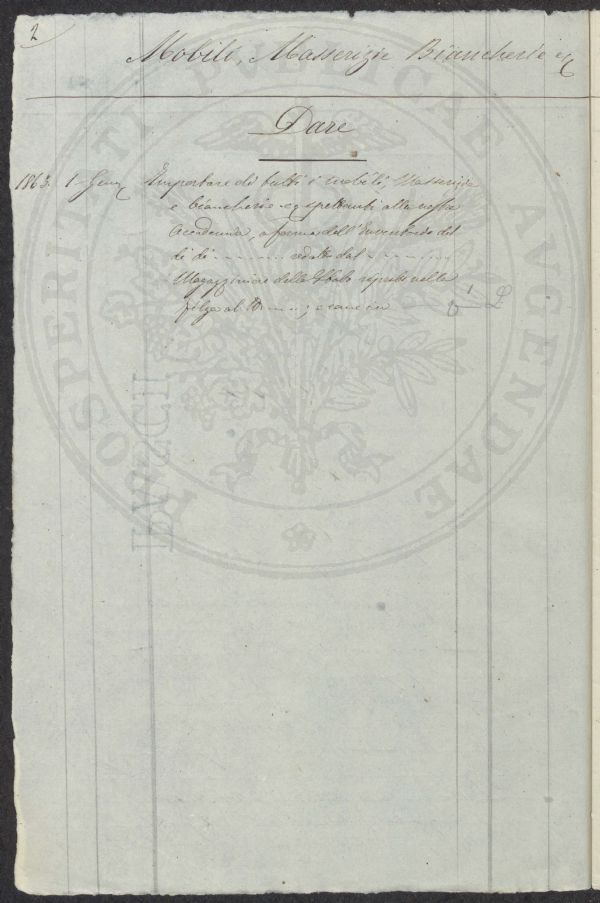 2
Mobili, Masserizie Biancherie &
Dare
1863. 1 Genn Importare di tutti i mobili, Masserizie
e biancherie spettanti alla nostra
Accademia, a forma dell'Inventario del
di di ......... redatto dal .........
Magazziniere dello Stab.o nella
filza al N.o .....; e cassa in 1 L
PROSPERITATI PUBLICAE AUGENDAE